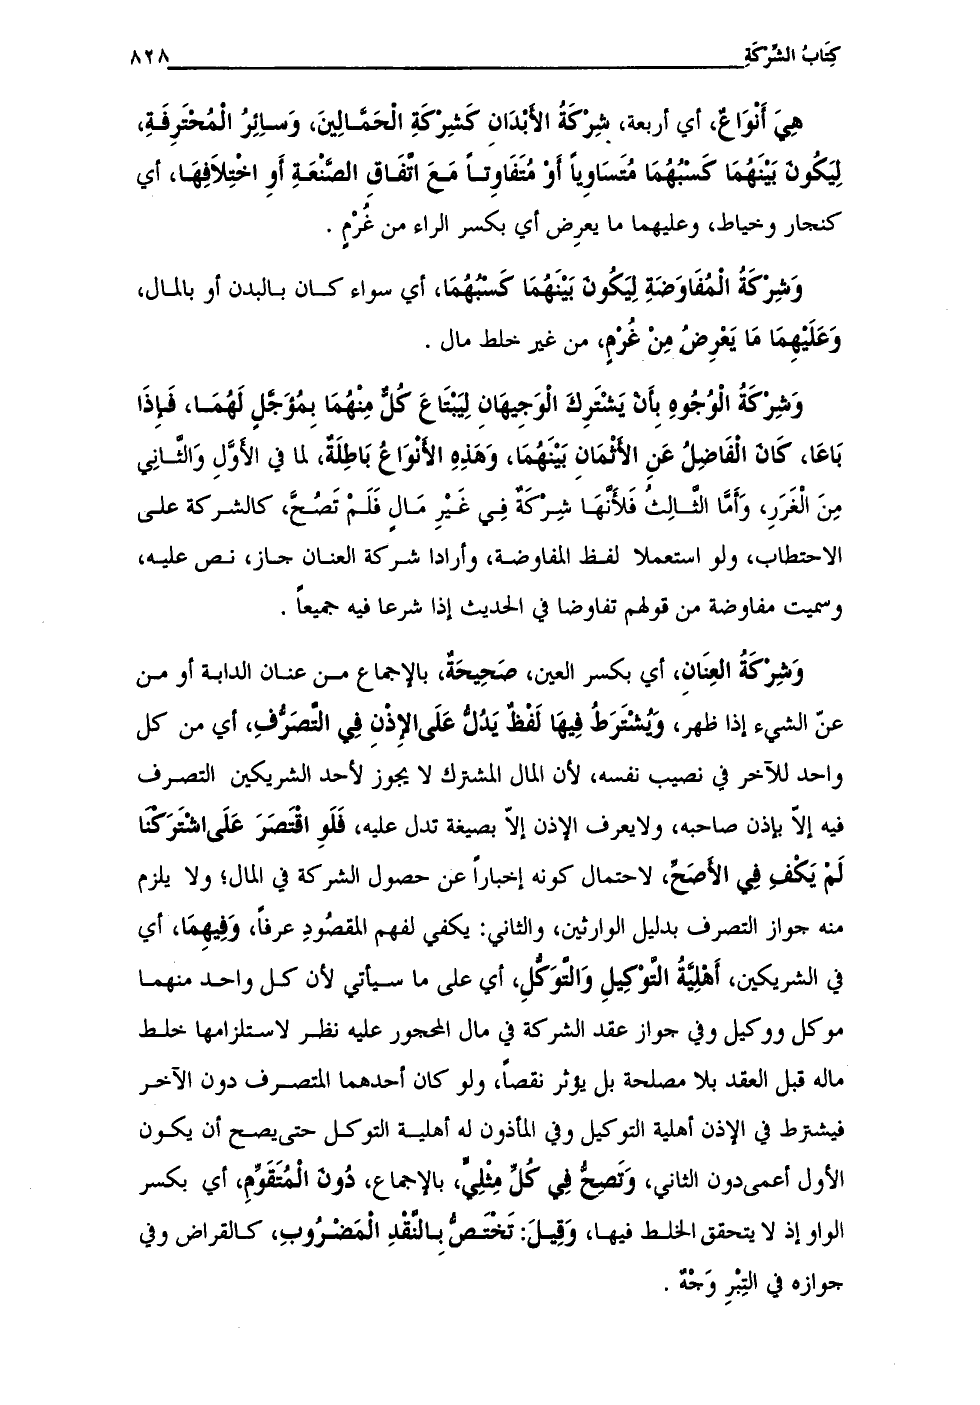 كِتَابُ الشَّرِكَةِ ٨٢٨
هِيَ أَنْوَاعٌ، أي أربعة، شِرْكَةُ الأَبْدَانِ كَشِرْكَةِ الْحَمَّالِينَ، وَسَائِرُ الْمُحْتَرِفَةِ،
لِيَكُونَ بَيْنَهُمَا كَسْبُهُمَا مُتَسَاوِياً أَوْ مُتَفَاوِتاً مَعَ اتِّفَاقِ الصَّنْعَةِ أَوِ اخْتِلاَفِهَا، أي
كنجار وخياط، وعليهما ما يعرِض أي بكسر الراء من غُرْمٍ .
وَشِرْكَةُ الْمُفَاوَضَةِ لِيَكُونَ بَيْنَهُمَا كَسْبُهُمَا، أي سواء كان بالبدن أو بالمال،
وَعَلَيْهِمَا مَا يَعْرِضُ مِنْ غُرْمٍ، من غير خلط مال .
وَشِرْكَةُ الْوُجُوهِ بِأَنْ يَشْتَرِكَ الْوَجِيهَانِ لِيَبْتَاعَ كُلٌّ مِنْهُمَا بِمُؤَجَّلٍ لَهُمَا، فَإِذَا
بَاعَا، كَانَ الْفَاضِلُ عَنِ الأَثْمَانِ بَيْنَهُمَا، وَهَذِهِ الأَنْوَاعُ بَاطِلَةٌ، لما في الأَوَّلِ وَالثَّانِي
مِنَ الْغَرَرِ، وَأَمَّا الثَّالِثُ فَلأَنَّهَا شِرْكَةٌ فِي غَيْرِ مَالٍ فَلَمْ تَصُحَّ، كالشركة على
الاحتطاب، ولو استعملا لفظ المفاوضة، وأرادا شركة العنان جاز، نص عليه،
وسميت مفاوضة من قولهم تفاوضا في الحديث إذا شرعا فيه جميعاً .
وَشِرْكَةُ العِنَانِ، أي بكسر العين، صَحِيحَةٌ، بالإجماع من عنان الدابة أو من
عنّ الشيء إذا ظهر، وَيُشْتَرَطُ فِيهَا لَفْظٌ يَدُلُّ عَلَى الإِذْنِ فِي التَّصَرُّفِ، أي من كل
واحد للآخر في نصيب نفسه، لأن المال المشترك لا يجوز لأحد الشريكين التصرف
فيه إلاّ بإذن صاحبه، ولايعرف الإذن إلاّ بصيغة تدل عليه، فَلَوِ اقْتَصَرَ عَلَى اشْتَرَكْنَا
لَمْ يَكْفِ فِي الأَصَحِّ، لاحتمال كونه إخباراً عن حصول الشركة في المال؛ ولا يلزم
منه جواز التصرف بدليل الوارثين، والثاني: يكفي لفهم المقصُودِ عرفاً، وَفِيهِمَا، أي
في الشريكين، أَهْلِيَّةُ التَّوْكِيلِ وَالتَّوَكُّلِ، أي على ما سيأتي لأن كل واحد منهما
موكل ووكيل وفي جواز عقد الشركة في مال المحجور عليه نظر لاستلزامها خلط
ماله قبل العقد بلا مصلحة بل يؤثر نقصاً، ولو كان أحدهما المتصرف دون الآخر
فيشترط في الإذن أهلية التوكيل وفي المأذون له أهلية التوكل حتى يصح أن يكون
الأول أعمى دون الثاني، وَتَصِحُّ فِي كُلِّ مِثْلِيٍّ، بالإجماع، دُونَ الْمُتَقَوِّمِ، أي بكسر
الواو إذ لا يتحقق الخلط فيها، وَقِيلَ: تَخْتَصُّ بِالنَّقْدِ الْمَضْرُوبِ، كالقراض وفي
جوازه في التِبْرِ وَجْهٌ .